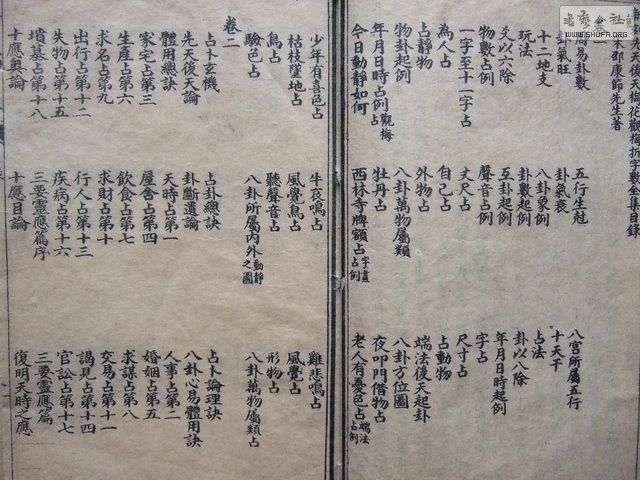 先天後天梅花觀梅拆字數全集目錄
宋邵康節先生著
周易卦數 五行生尅 八宮所屬五行
卦氣旺 卦氣衰 十天干
十二地支 八卦象例 占法
玩法 卦數起例 卦以八除
爻以六除 互卦起例 年月日時起例
物數占例 聲音占例 字占
一字至十一字占 丈尺占 尺寸占
為人占 自己占 占動物
占靜物 外物占 端法後天起卦
物卦起例 八卦萬物屬類 八卦方位圖
年月日時占例觀梅占 牡丹占 夜叩門借物占
今日動靜如何 西林寺牌額占字畫占例 老人有憂色占端法占例
少年有喜色占 牛哀鳴占 雞悲鳴占
枯枝墜地占 風覺鳥占 風覺占
鳥占 聽聲音占 形物占
驗色占 八卦所屬內外動靜之圖 八卦萬物屬類占
卷二
占卜玄機 占卜總訣 占卜論理訣
先天後天論 卦斷遺論 八卦心易體用訣
體用總訣 天時占第一 人事占第二
家宅占第三 屋舍占第四 婚姻占第五
生產占第六 飲食占第七 求謀占第八
求名占第九 求財占第十 交易占第十一
出行占第十二 行人占第十三 謁見占第十四
失物占第十五 疾病占第十六 官訟占第十七
墳墓占第十八 三要靈應篇序 三要靈應篇
十應奧論 十應目論 復明天時之應